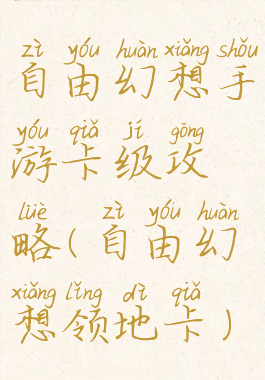 zì yóu huàn xiǎng shǒu
自由幻想手
yóu qiǎ jí gōng
游卡级攻
lüè zì yóu huàn
略(自由幻
xiǎng lǐng dì qiǎ
想领地卡)